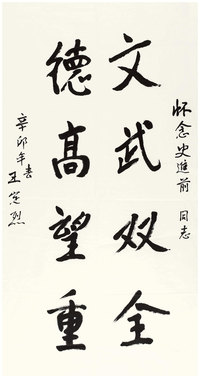 怀念史進前同志
文武双全
德高望重
辛卯年春
王宪烈